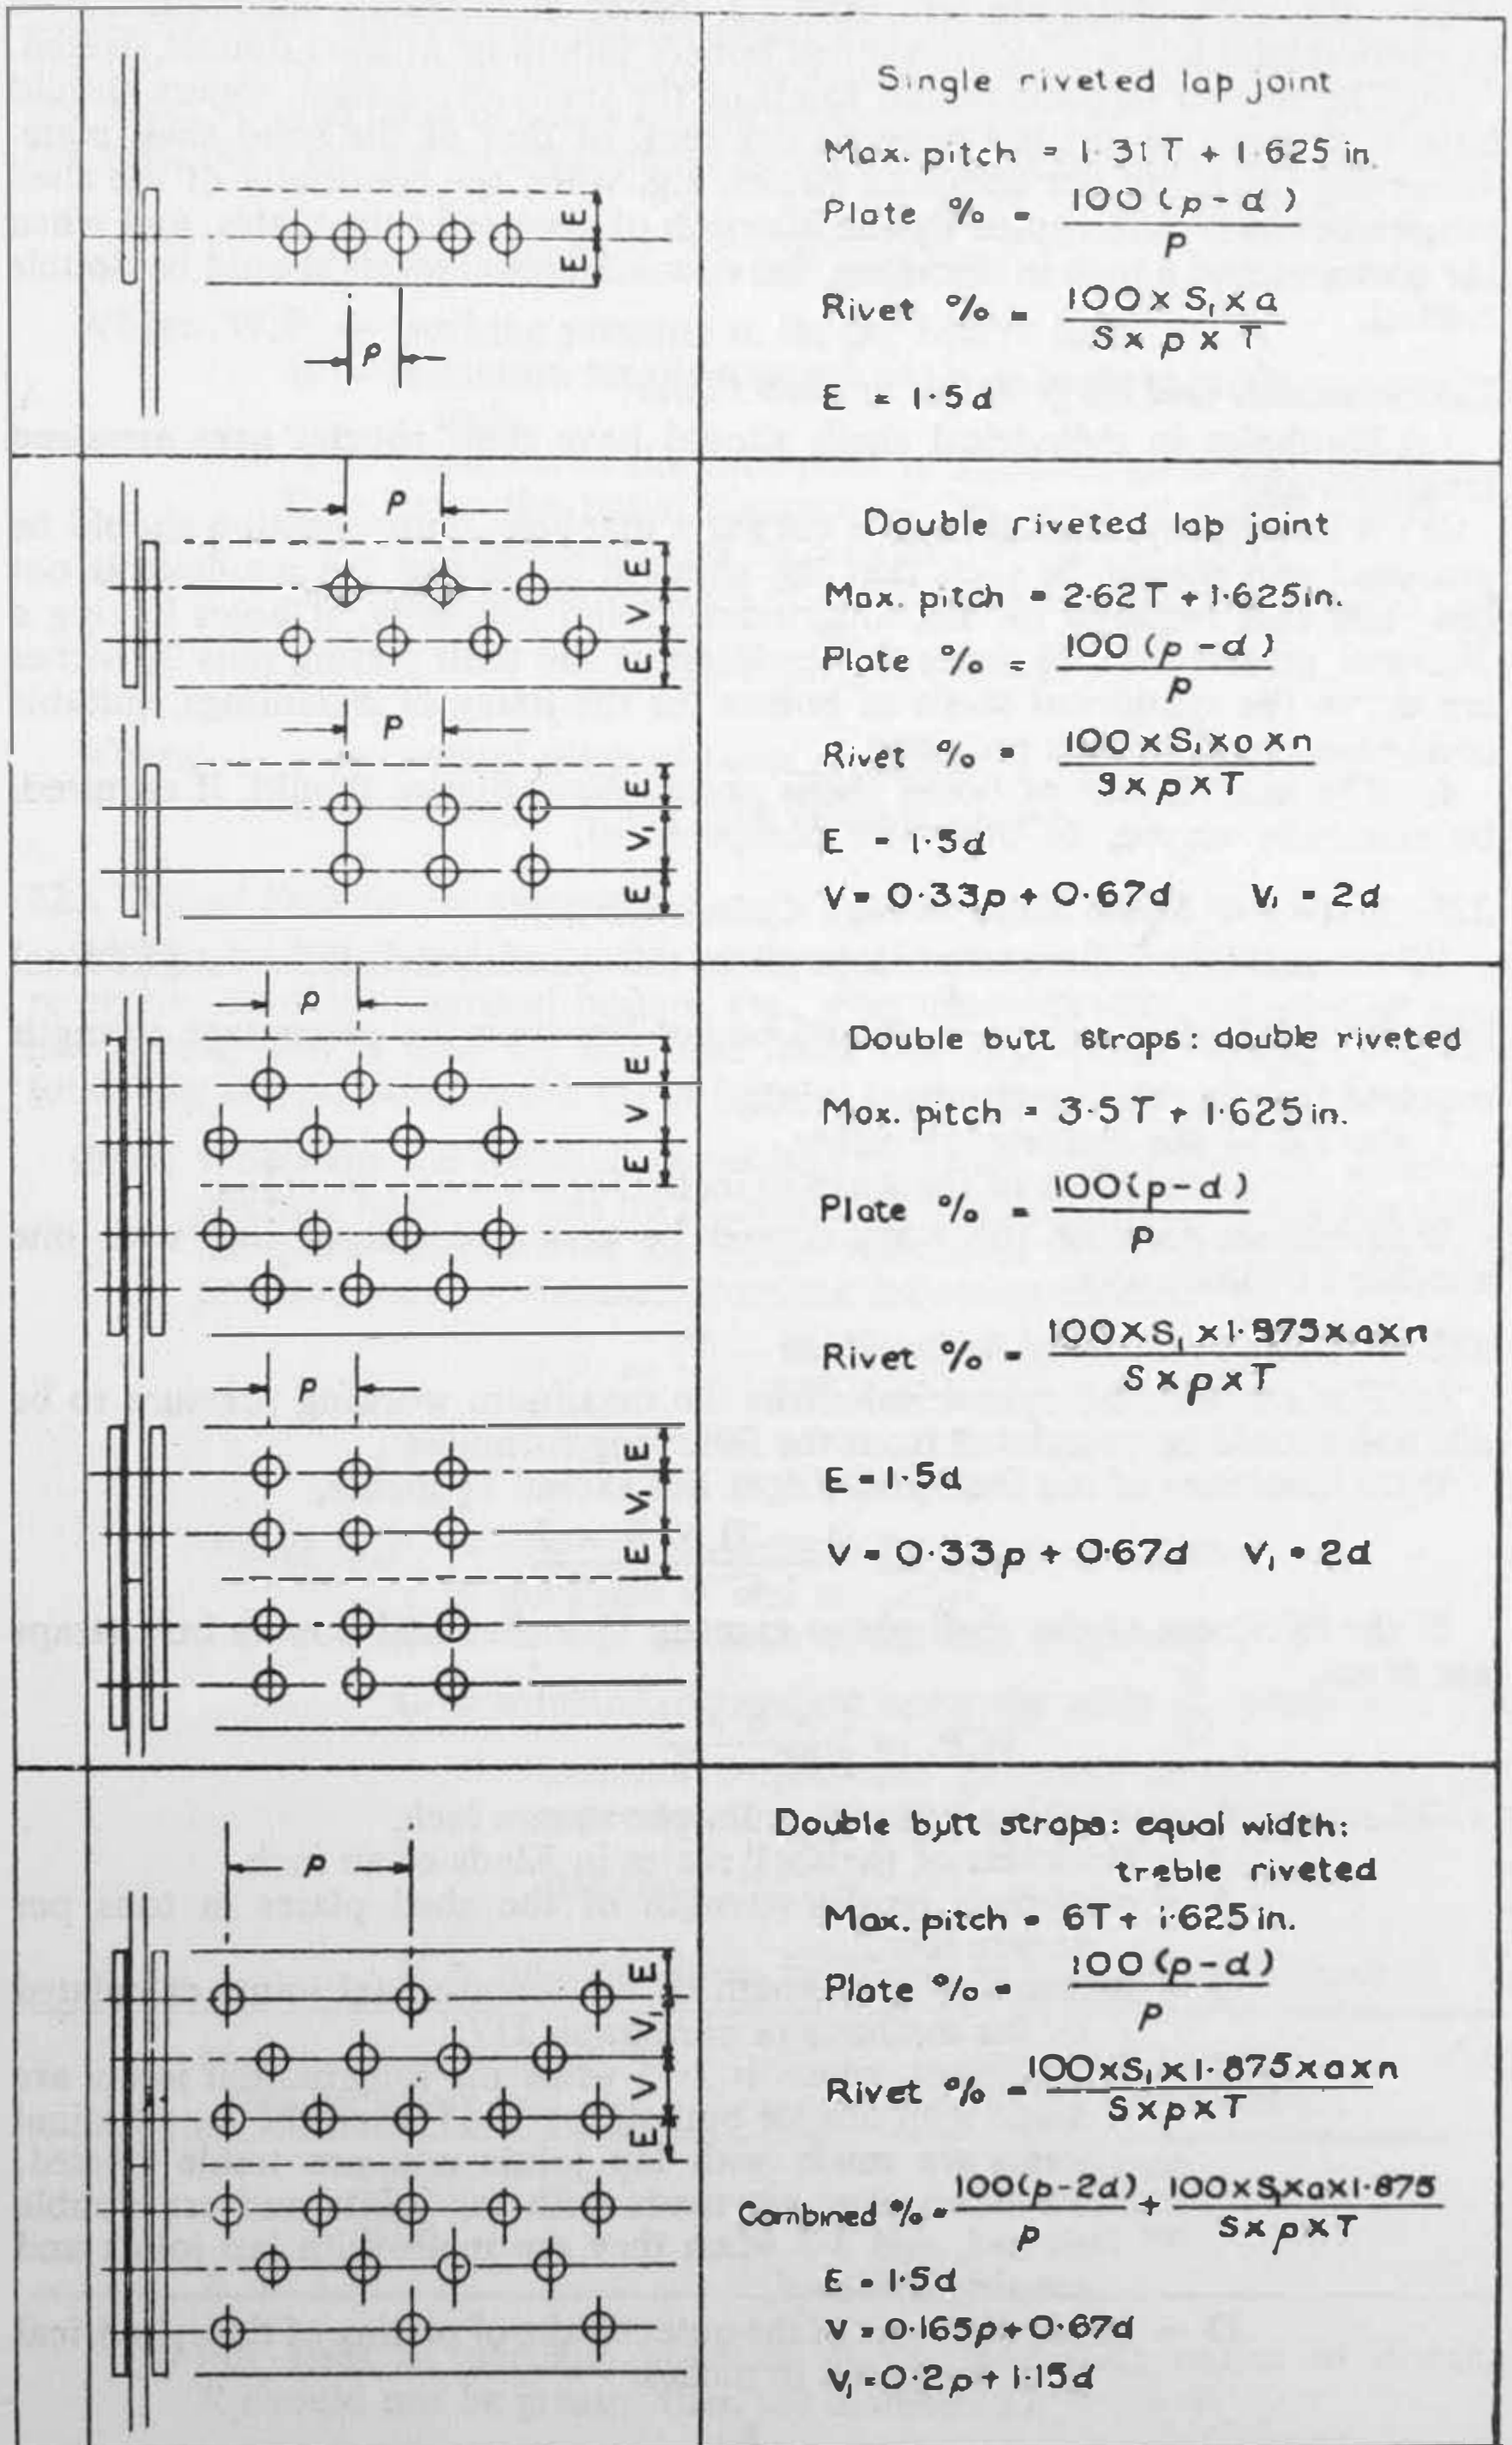 E
E
p
Single riveted lap joint
Max. pitch = 1·31T + 1·625 in.
Plate % = 100 (p - d) / p
Rivet % = 100 × S₁ × a / S × p × T
E = 1·5d
p
E
V
E
p
E
V₁
E
Double riveted lap joint
Max. pitch = 2·62T + 1·625in.
Plate % = 100 (p - d) / p
Rivet % = 100 × S₁ × a × n / S × p × T
E = 1·5d
V = 0·33p + 0·67d V₁ = 2d
p
E
V
E
p
E
V₁
E
Double butt straps: double riveted
Max. pitch = 3·5T + 1·625in.
Plate % = 100(p - d) / p
Rivet % = 100 × S₁ × 1·875 × a × n / S × p × T
E = 1·5d
V = 0·33p + 0·67d V₁ = 2d
p
E
V₁
V
E
Double butt straps: equal width:
treble riveted
Max. pitch = 6T + 1·625in.
Plate % = 100 (p - d) / p
Rivet % = 100 × S₁ × 1·875 × a × n / S × p × T
Combined % = 100(p - 2d) / p + 100 × S₁ × a × 1·875 / S × p × T
E = 1·5d
V = 0·165p + 0·67d
V₁ = 0·2p + 1·15d